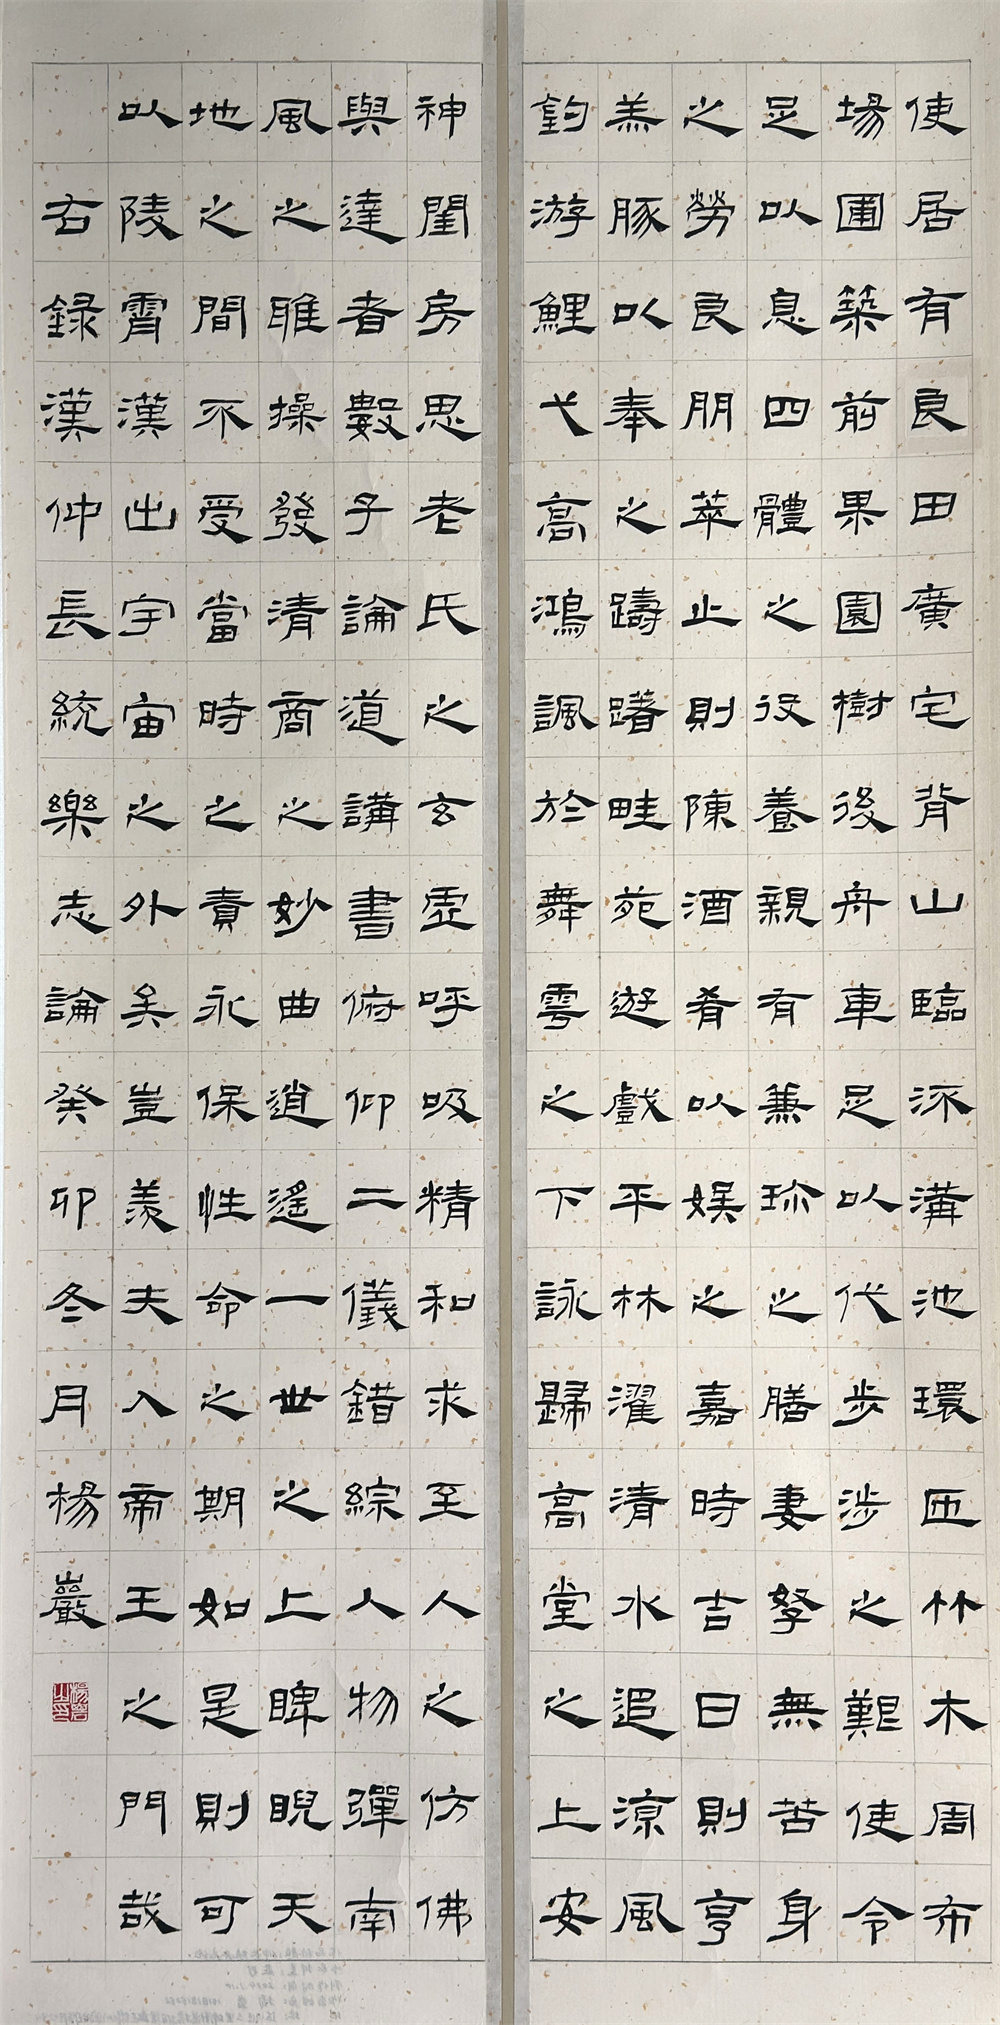 使居有良田廣宅背山臨流溝池環匝竹木周布
場圃築前果園樹後舟車足以代步涉之艱使令
足以息四體之役養親有兼珍之膳妻孥無苦身
之勞良朋萃止則陳酒肴以娛之嘉時吉日則亨
羔豚以奉之躊躇畦苑遊戲平林濯清水追涼風
釣游鯉弋高鴻諷於舞雩之下詠歸高堂之上安
神閨房思老氏之玄虛呼吸精和求至人之仿佛
與達者數子論道講書俯仰二儀錯綜人物彈南
風之雅操發清商之妙曲逍遙一世之上睥睨天
地之間不受當時之責永保性命之期如是則可
以陵霄漢出宇宙之外矣豈羨夫入帝王之門哉
右錄漢仲長統樂志論癸卯冬月楊巖